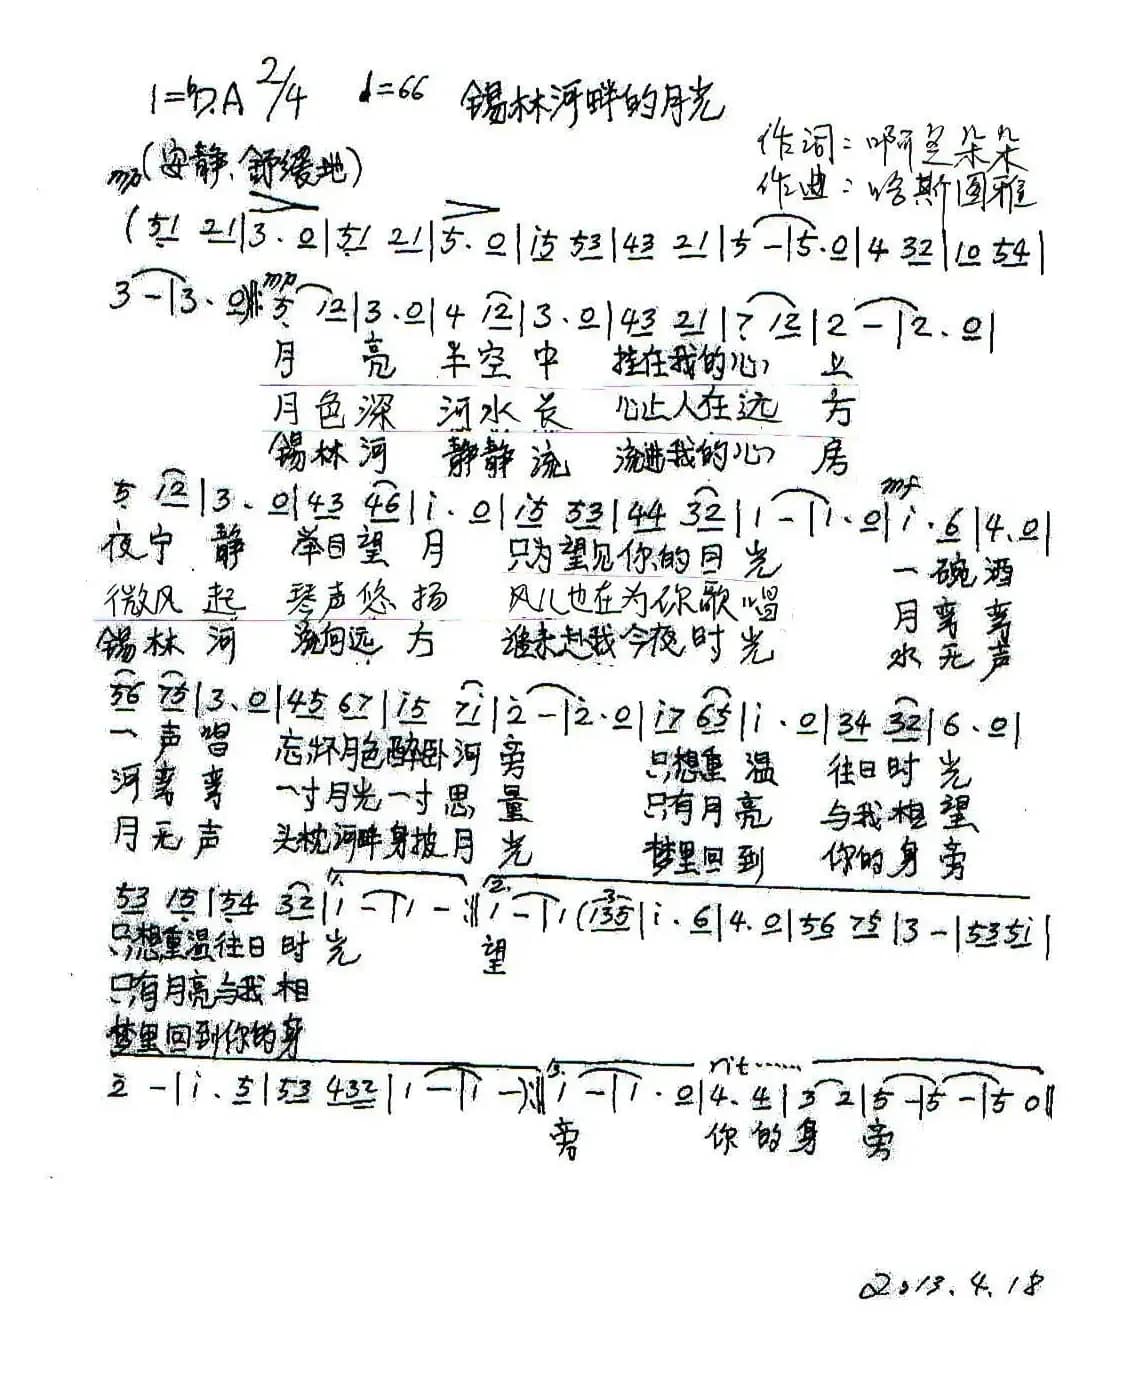 1=ᵇB.A 2/4 ♩=66 锡林河畔的月光
作词：啊兰朵朵
mp(安静、舒缓地)
作曲：哈斯图雅
(51 21|3. 0|51 21|5. 0|i5 53|43 21|5 -|5. 0|4 32|10 54|
3 -|3. 0)‖: mp 5 12|3. 0|4 12|3. 0|43 21|7 12|2 -|2. 0|
月 亮 半空中 挂在我的心 上
月色深 河水长 心上人在远 方
锡林河 静静流 流进我的心 房
mf
5 12|3. 0|43 46|i. 0|i5 53|44 32|1 -|1. 0|i. 6|4. 0|
夜宁 静 举目望 月 只为望见你的目 光 一碗酒
微风 起 琴声悠 扬 风儿也在为你歌 唱 月弯 弯
锡林 河 流向远 方 谁来赴我今夜时 光 水无声
56 75|3. 0|45 67|i5 7i|2 -|2. 0|i7 65|i. 0|34 32|6. 0|
一声 唱 忘怀月色醉卧河 旁 只想重 温 往日时 光
河弯 弯 一寸月光一寸思 量 只有月 亮 与我相 望
月无 声 头枕河畔身披月 光 梦里回 到 你的身 旁
53 15|54 32|1. 1 -|1 - :‖2. 1 -|1 (3 135|i. 6|4. 0|56 75|3 -|535i|
只想重温往日时 光 望
只有月亮与我相
梦里回到你的身
rit……
2 -|i. 5|53 432|1 -|1 -):‖3. i -|1. 0|4. 4|3 2|5 -|5 -|5 0‖
旁 你的身 旁
2013.4.18